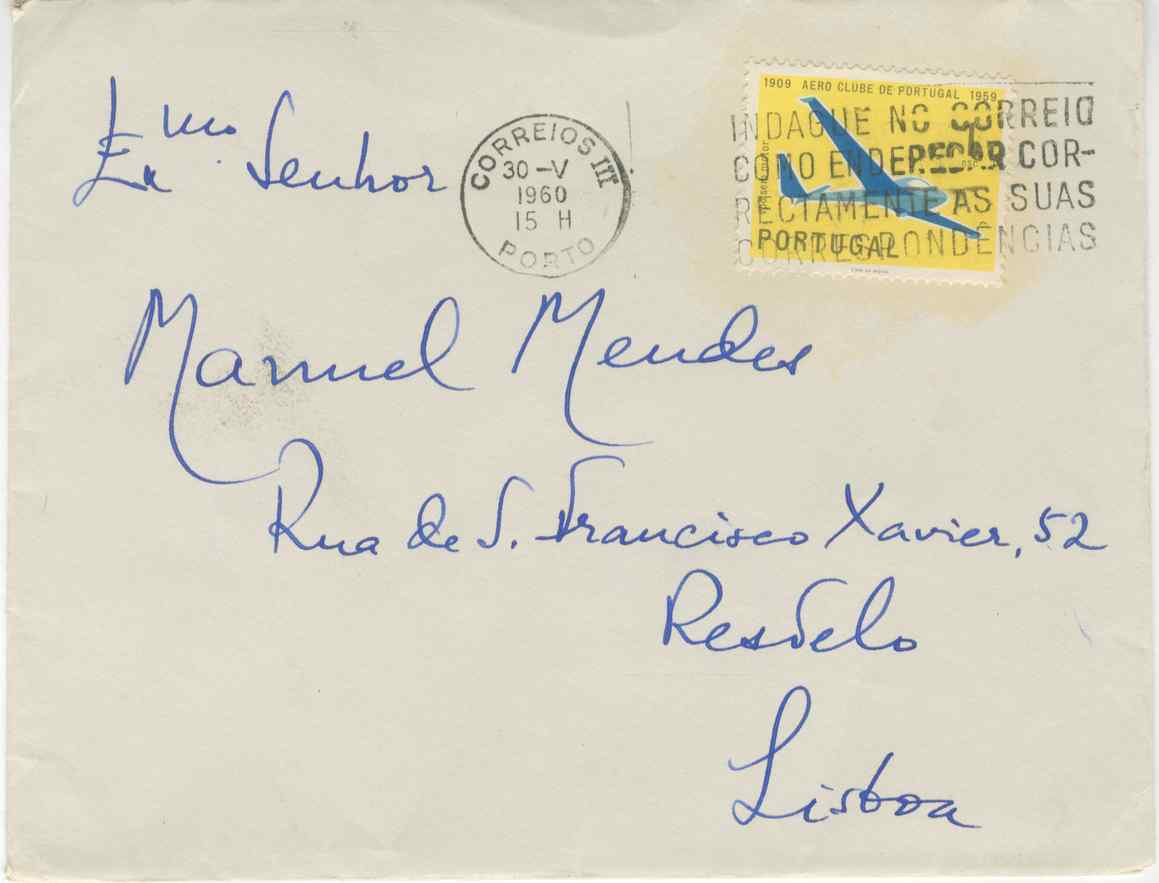 1909 AERO CLUBE DE PORTUGAL 1959
PORTUGAL
CORREIOS III
30-V
1960
15 H
PORTO
INDAGUE NO CORREIO
COMO ENDEREÇAR COR-
RECTAMENTE AS SUAS
CORRESPONDÊNCIAS
Exmo Senhor
Manuel Mendes
Rua de S. Francisco Xavier, 52
Restelo
Lisboa